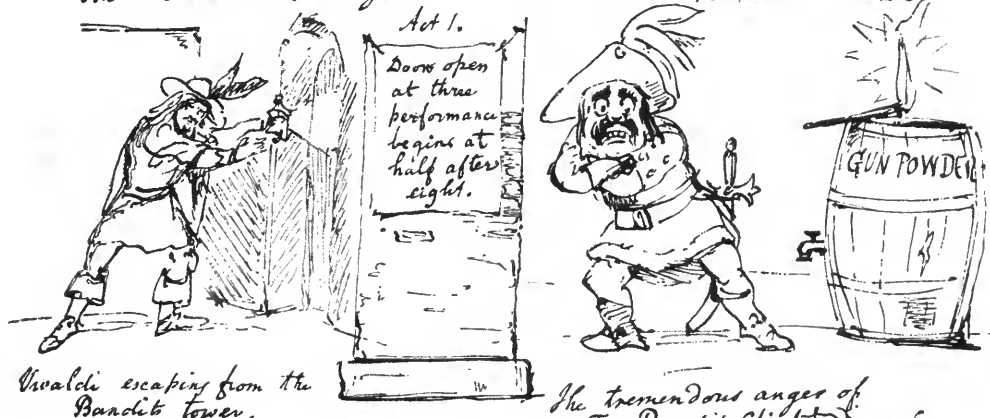 Act 1.
Doors open
at three
performance
begins at
half after
eight.
GUN POWDER
Vivaldi escaping from the
Bandits tower.
The tremendous anger of
Bandit